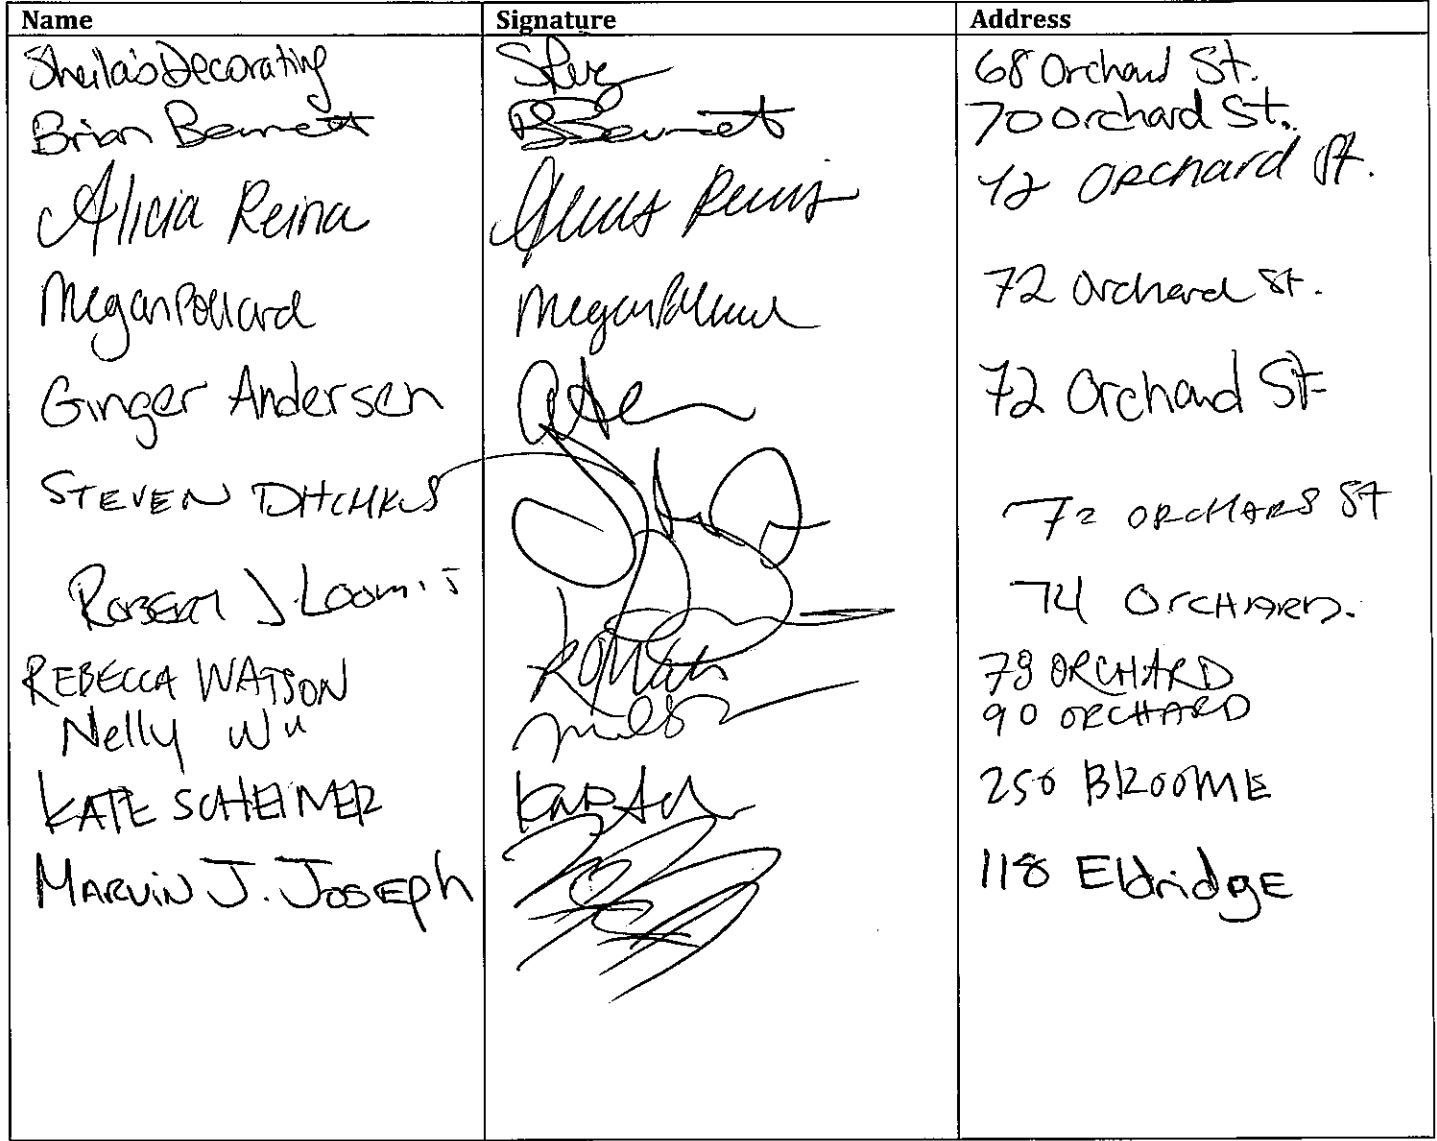 Name Signature Address
Sheila's Decorating 68 Orchard St.
Brian Bennett BBennett 70 Orchard St.
Alicia Reina 72 Orchard St.
Megan Pollard Megan Pollard 72 Orchard St.
Ginger Andersen 72 Orchard St
STEVEN DITCHKUS 72 ORCHARD St
ROBERT J. Loomis 74 ORCHARD.
REBECCA WATSON 79 ORCHARD
Nelly Wu 90 ORCHARD
KATE SCHEIMER 250 BROOME
MARVIN J. JOSEPh 118 EldridgE